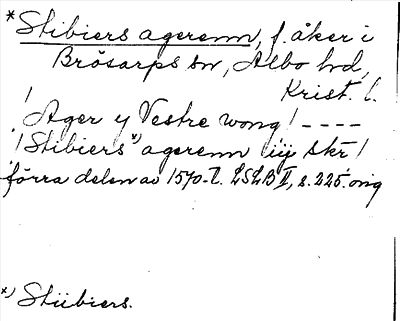 *Stibiers agerenn, f. åker i
Brösarps sn, Albo hd,
Krist. l.
/ Ager y Vestre wong / ----
/ Stibiers *) agerenn iiij skr /
förra delen av 1570-t. LSLB II, s. 225. orig
*) Stiibiers.